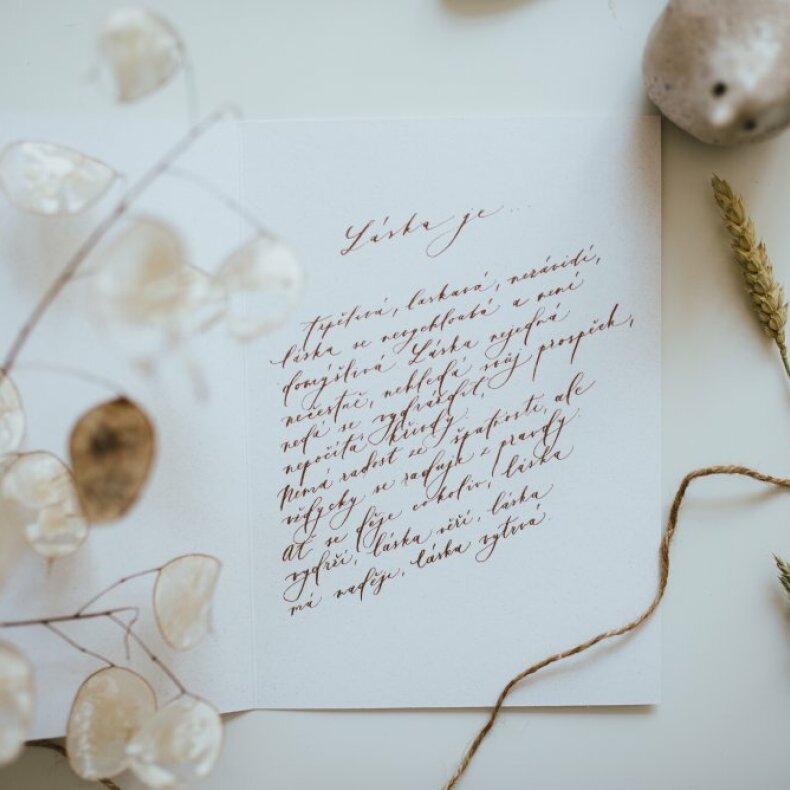 Láska je...
trpělivá, laskavá, nezávidí,
láska se nevychloubá a není
domýšlivá. Láska nejedná
nečestně, nehledá svůj prospěch,
nedá se vydráždit,
nepočítá křivdy.
Nemá radost ze špatnosti, ale
vždycky se raduje z pravdy.
Ať se děje cokoliv, láska
vydrží, láska věří, láska
má naději, láska vytrvá.